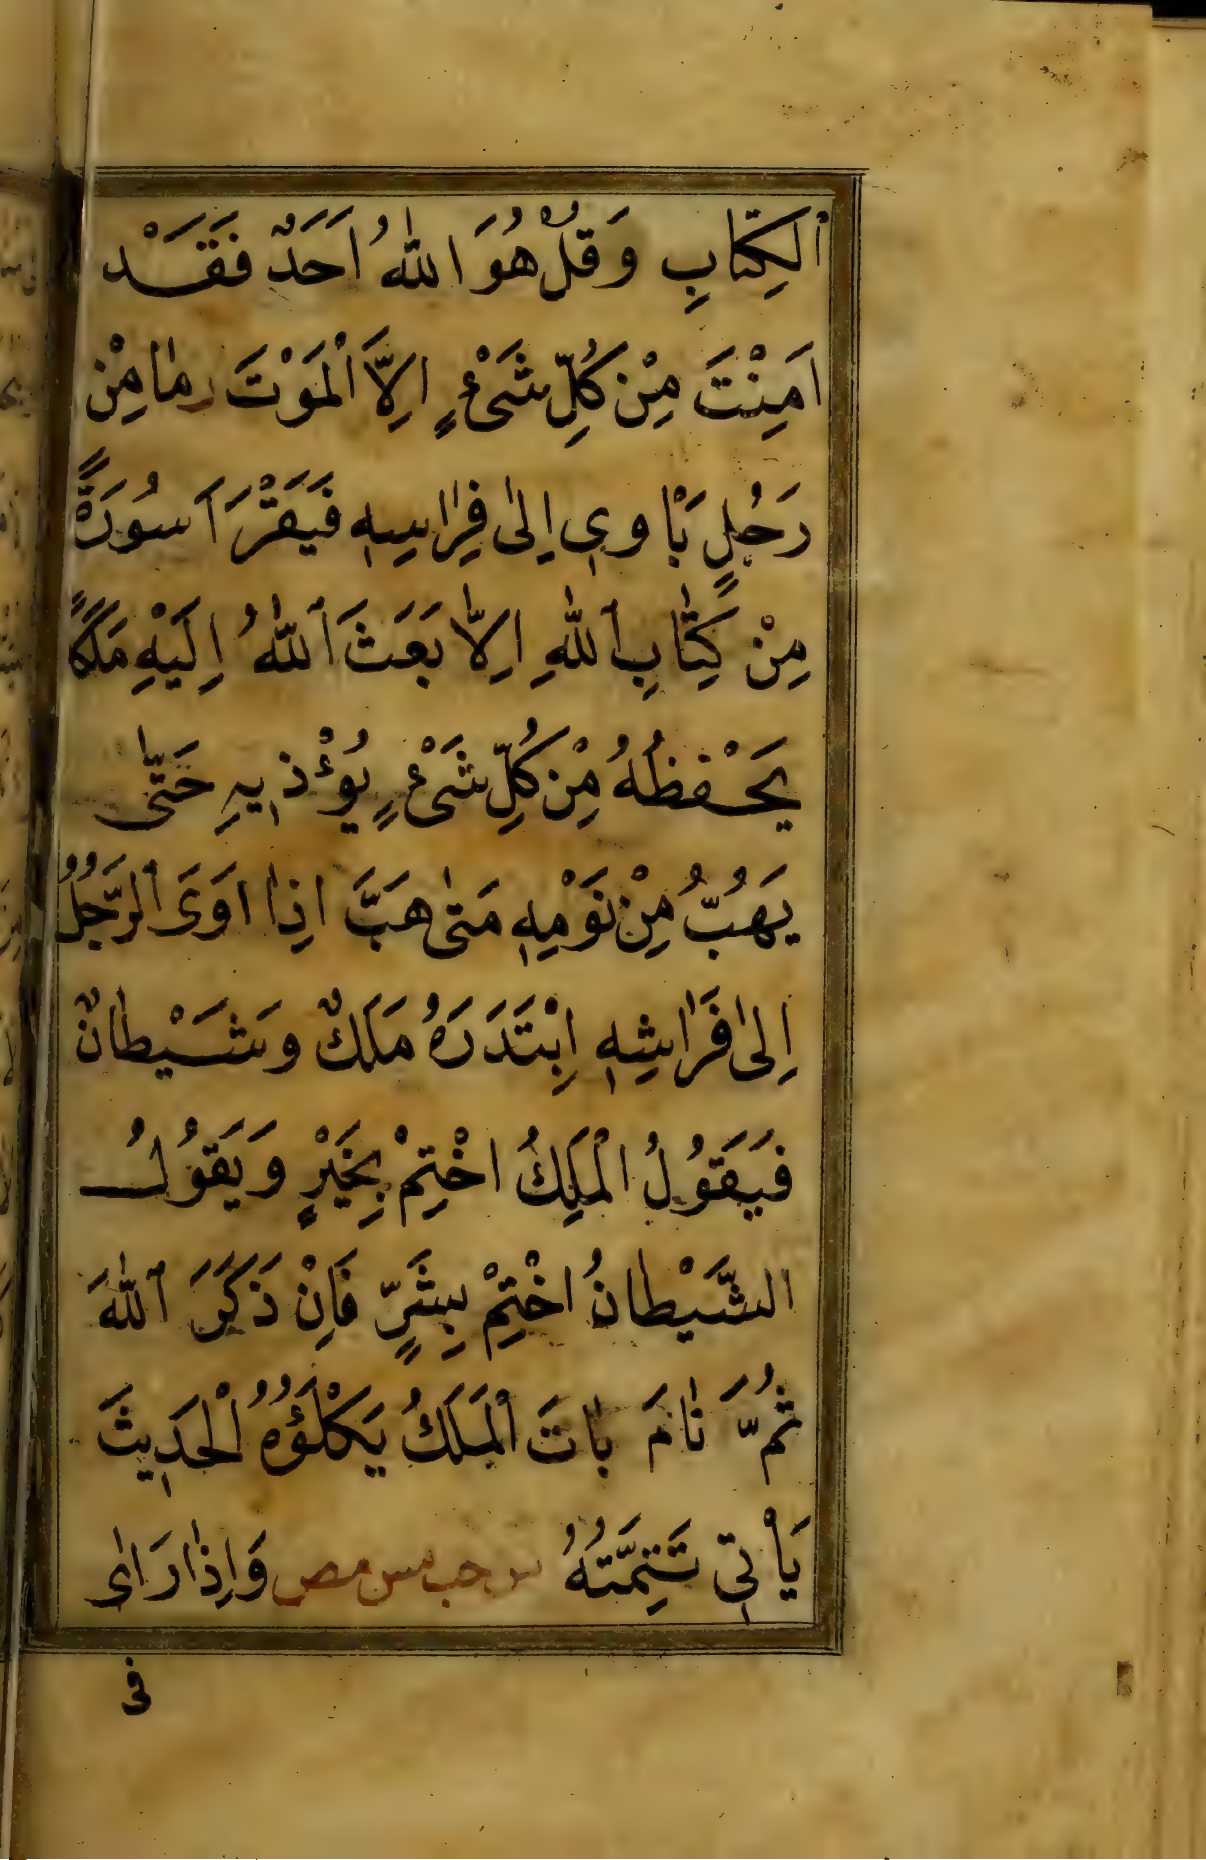 الْكِتَابِ وَقُلْ هُوَ اللّٰهُ اَحَدٌ فَقَدْ
اَمِنْتَ مِنْ كُلِّ شَىْءٍ اِلَّا الْمَوْتَ ر مَا مِنْ
رَجُلٍ يَاْوِى اِلٰى فِرَاشِهِ فَيَقْرَاَ سُورَةً
مِنْ كِتَابِ اللّٰهِ اِلَّا بَعَثَ اللّٰهُ اِلَيْهِ مَلَكًا
يَحْفَظُهُ مِنْ كُلِّ شَىْءٍ يُؤْذِيهِ حَتّٰى
يَهُبَّ مِنْ نَوْمِهِ مَتٰى هَبَّ ا اِذَا اَوَى الرَّجُلُ
اِلٰى فَرَاشِهِ اِبْتَدَرَهُ مَلَكٌ وَشَيْطَانٌ
فَيَقُولُ الْمَلِكُ اخْتِمْ بِخَيْرٍ وَيَقُولُ
الشَّيْطَانُ اخْتِمْ بِشَرٍّ فَاِنْ ذَكَرَ اللّٰهَ
ثُمَّ نَامَ بَاتَ الْمَلَكُ يَكْلَؤُهُ الْحَدِيثَ
يَأْتِى تَتِمَّتُهُ س حب مس مص وَاِذَا رَاٰى
فى